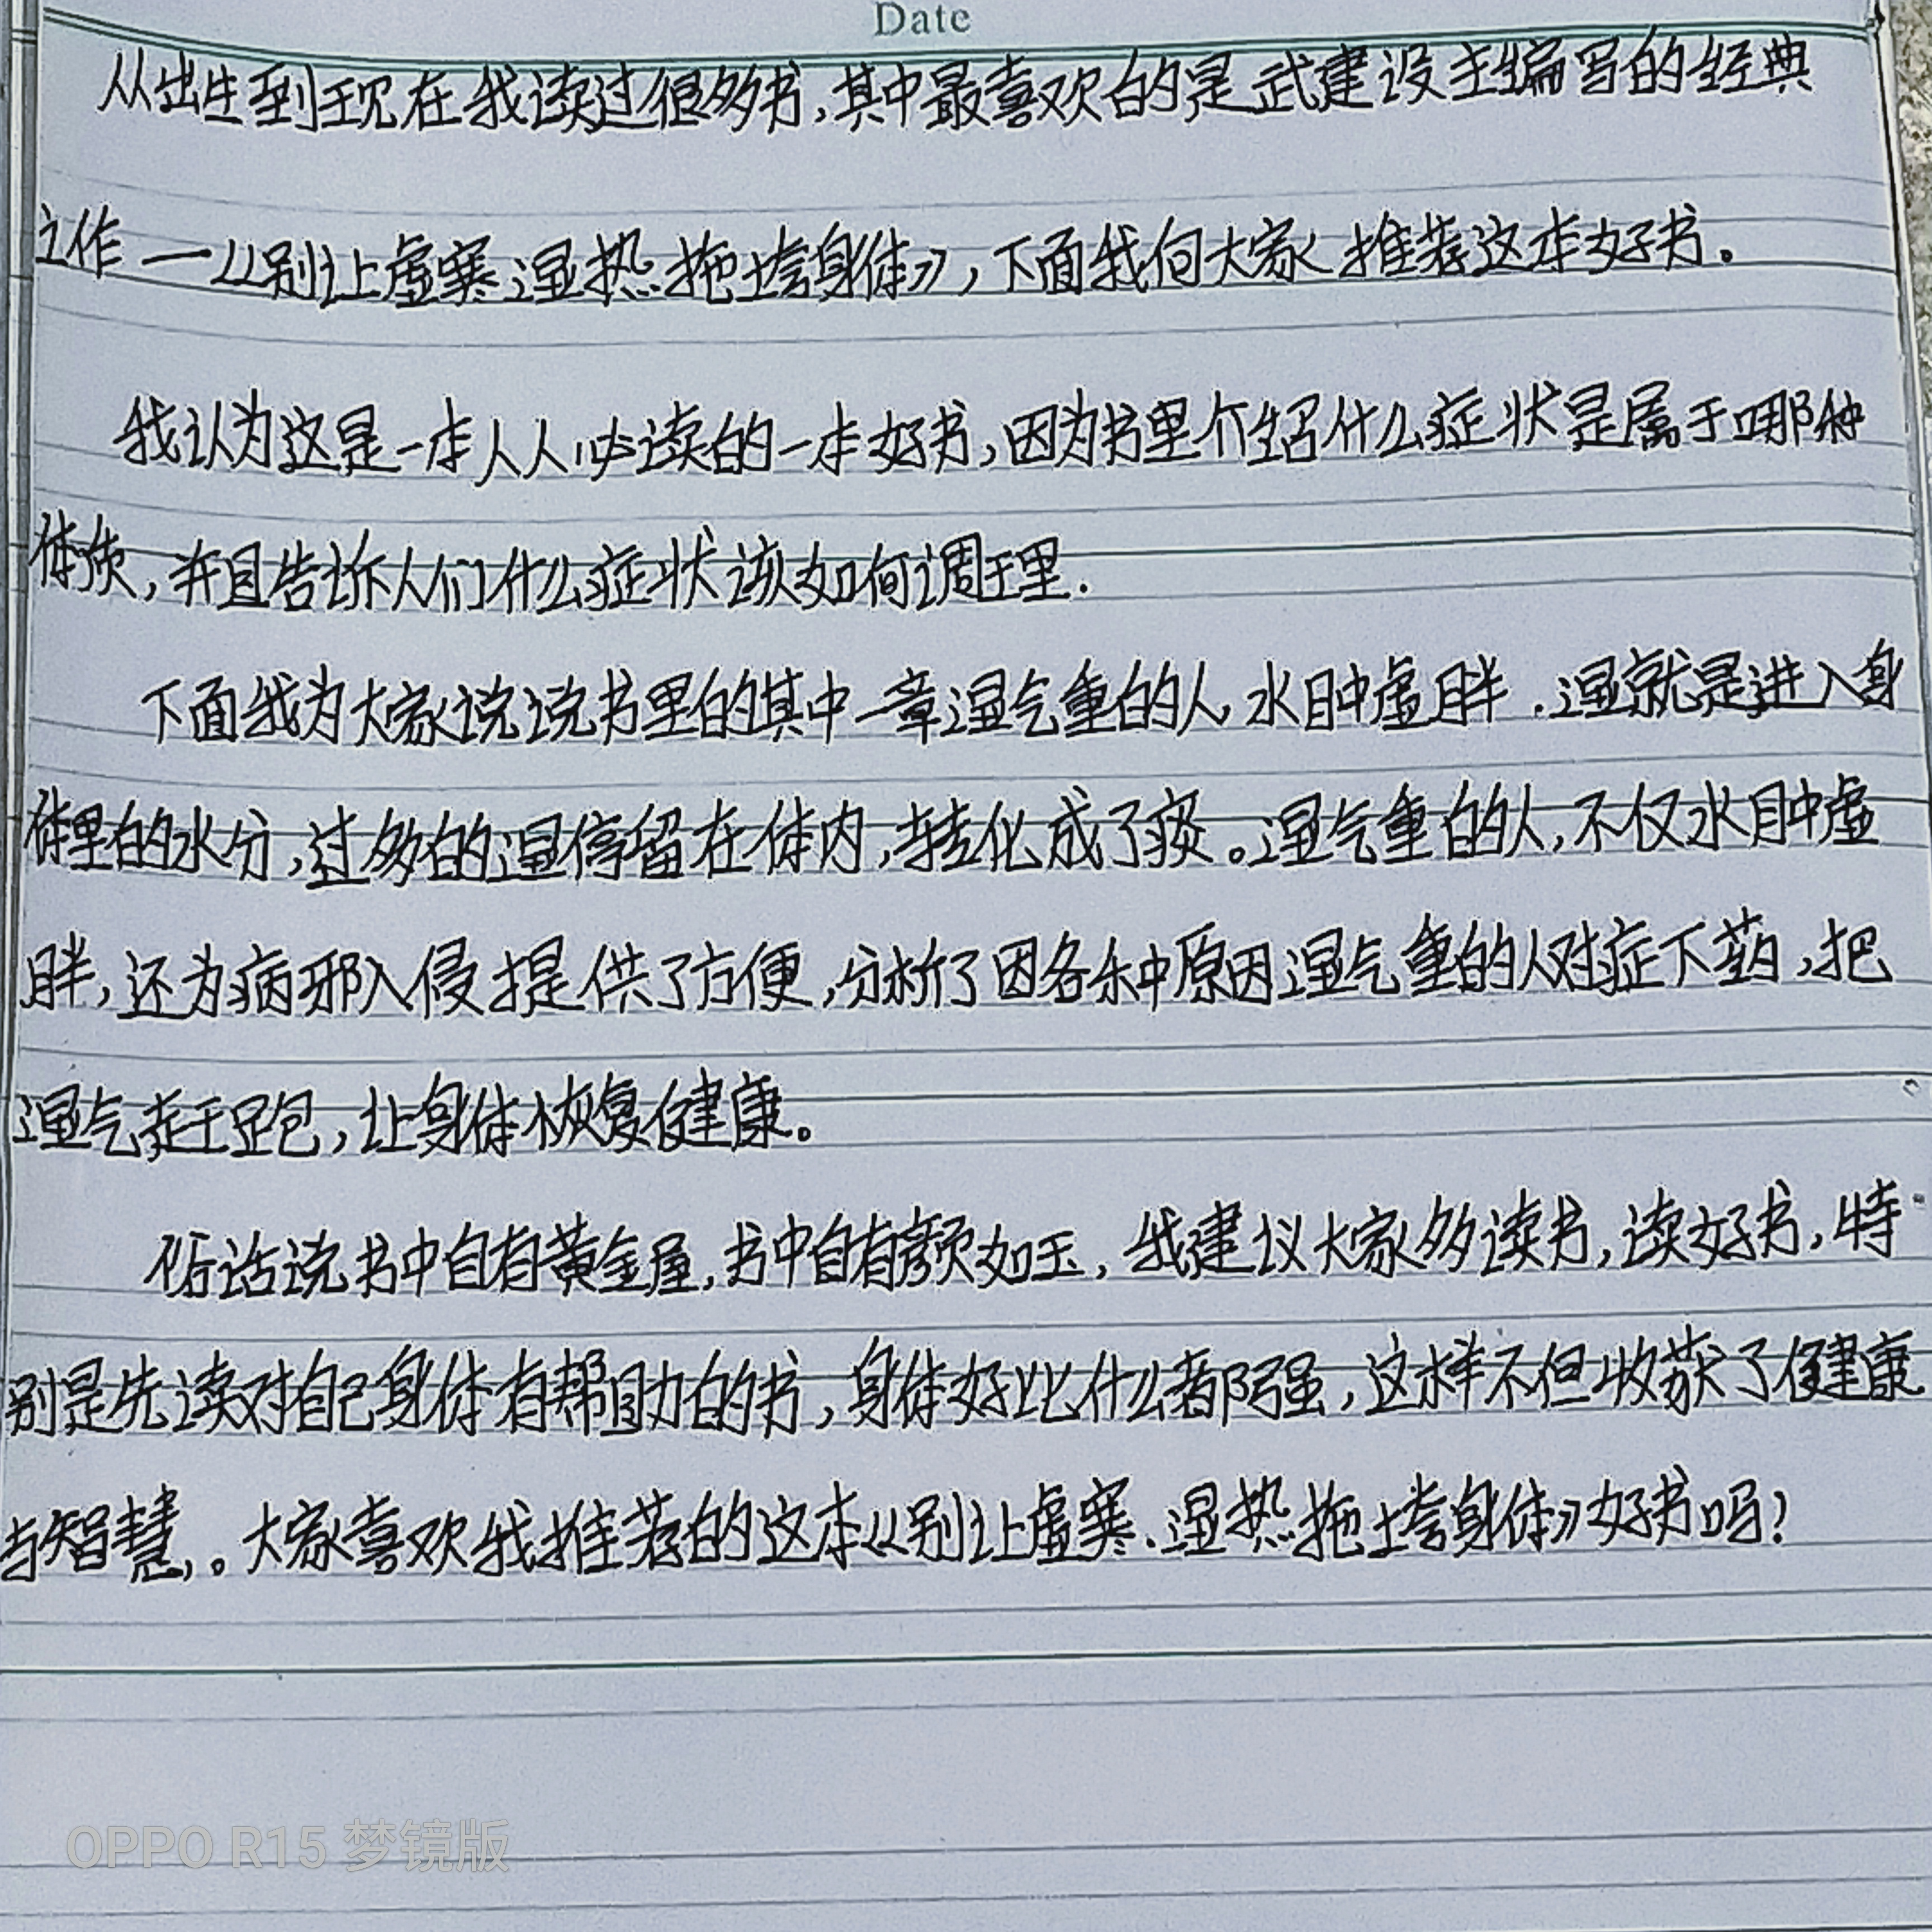 Date
从出生到现在我读过很多书,其中最喜欢的是武建设主编写的经典
之作一《别让虚寒湿热拖垮身体》,下面我向大家推荐这本好书。
我认为这是一本人人必读的一本好书,因为书里介绍什么症状是属于哪种
体质,并且告诉人们什么症状该如何调理.
下面我为大家说说书里的其中一章湿气重的人,水肿虚胖.湿就是进入身
体里的水分,过多的湿停留在体内,转化成了痰。湿气重的人,不仅水肿虚
胖,还为病邪入侵提供了方便,分析了因各种原因湿气重的人对症下药,把
湿气赶跑,让身体恢复健康。
俗话说书中自有黄金屋,书中自有颜如玉,我建议大家多读书,读好书,特
别是先读对自己身体有帮助的书,身体好比什么都强,这样不但收获了健康
与智慧。大家喜欢我推荐的这本《别让虚寒、湿热拖垮身体》好书吗?
OPPO R15 梦镜版